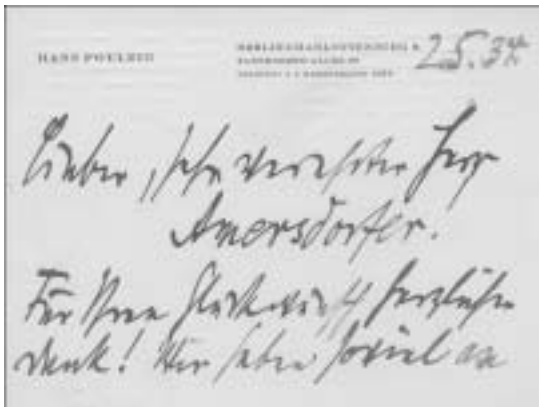 HANS POELZIG
2.5.34.
Lieber, sehr verehrter Herr
Amersdorfer!
Für Ihren Glückwunsch herzlichen
Dank! Wir haben soviel an